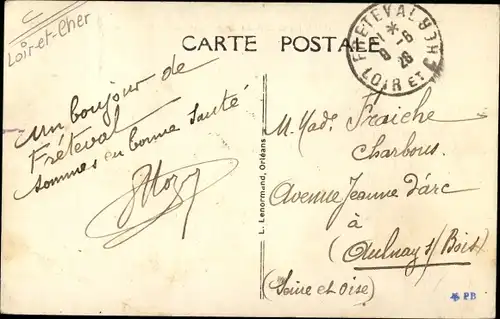 C
Loir-et-Cher
CARTE POSTALE
FRETEVAL
LOIR ET CHER
26
Un bonjour de
Fréteval
Sommes en bonne santé
L. Lenormand, Orléans
M. Made Fraiche
Charbons.
Avenue Jeanne d'arc
à
(Aulnay s/ Bois)
(Seine et Oise)
PB